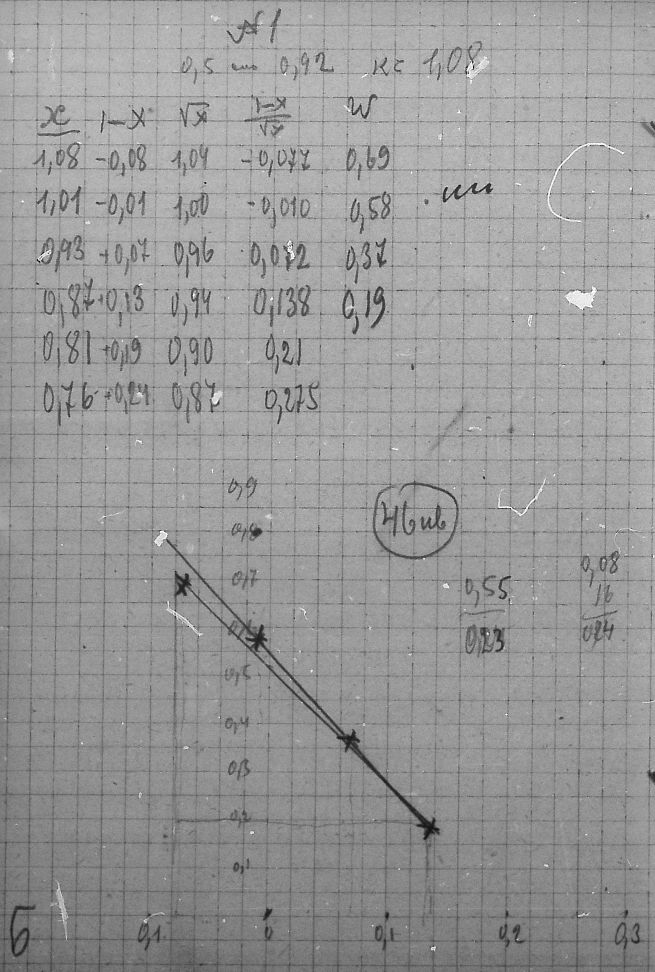 №1
0,5 0,92 к= 1,08
x 1-x √x 1-x/√x W
1,08 -0,08 1,04 -0,077 0,69
1,01 -0,01 1,00 -0,010 0,58
0,93 +0,07 0,96 0,072 0,37
0,87 +0,13 0,94 0,138 0,19
0,81 +0,19 0,90 0,21
0,76 +0,24 0,87 0,275
0,9
0,8
0,7
0,6
0,5
0,4
0,3
0,2
0,1
0,55
0,23
0,08
16
0,24
Б 0,1 0 0,1 0,2 0,3